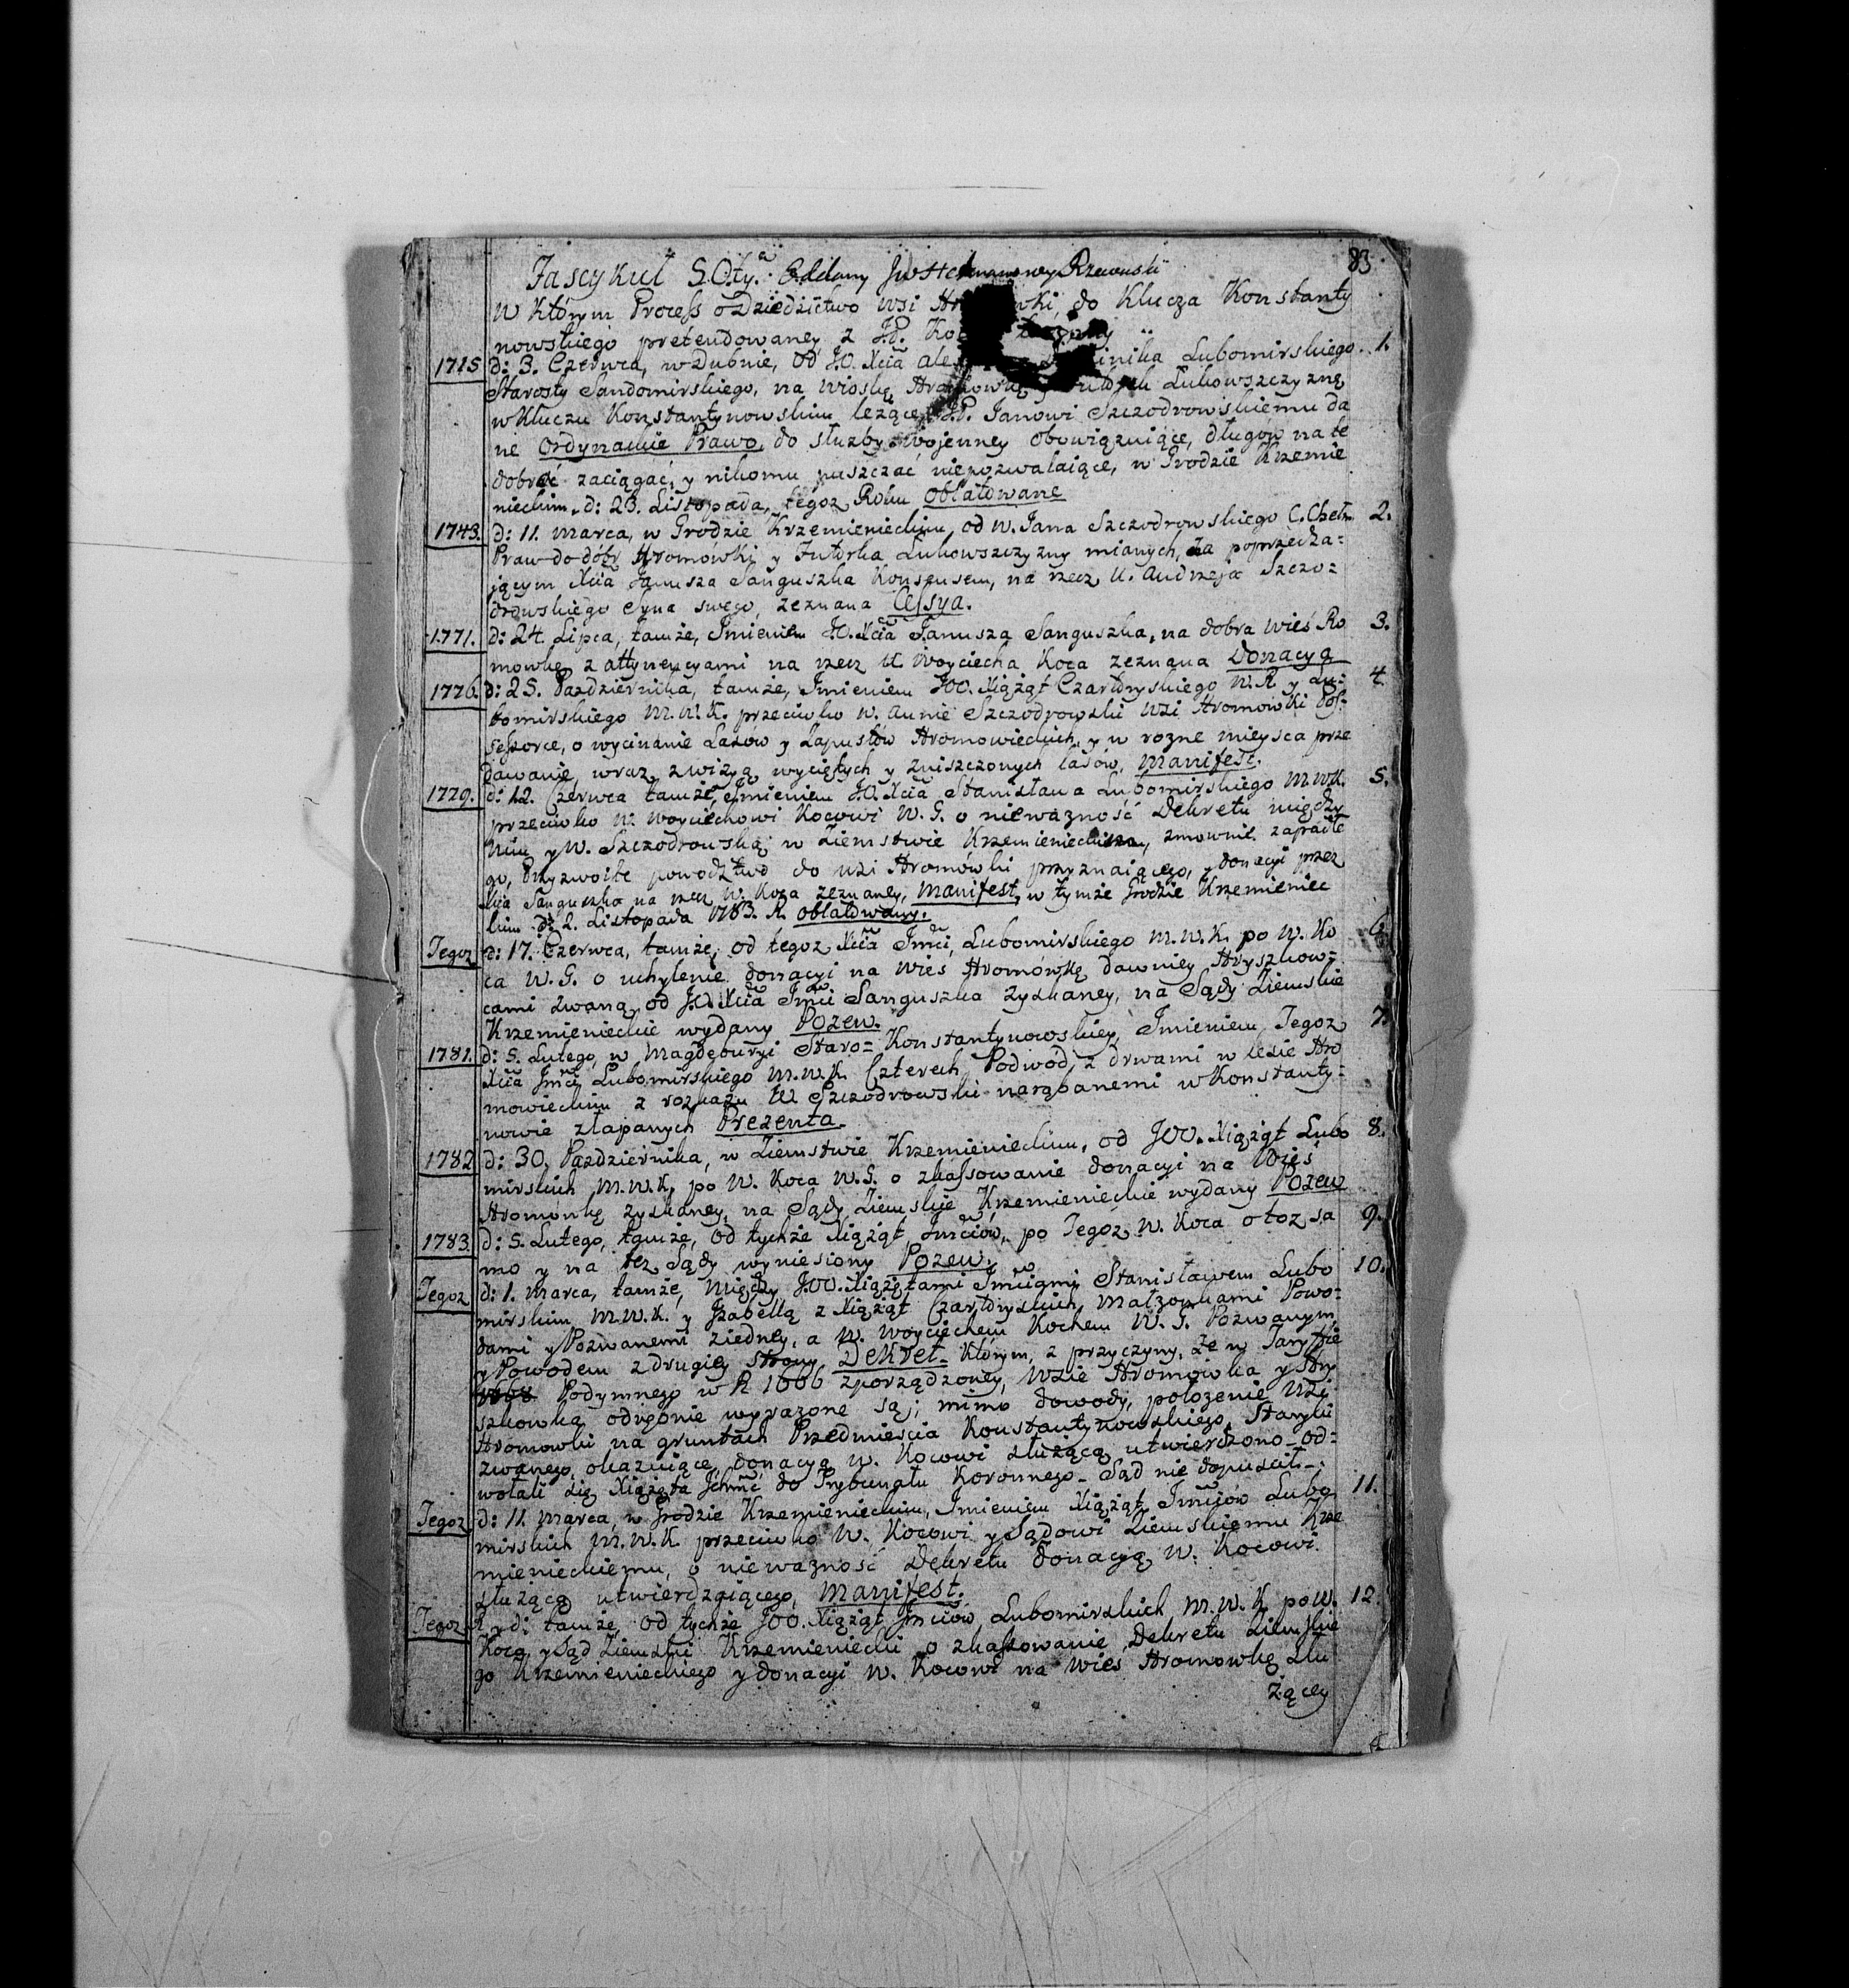 83.
Fascykuł 50ty. Oddany Rzewuski
W którym Process o Dziedzictwo wsi Hr wki, do Klucza Konstanty
nowskiego pretendowaney z JP. Ko
1715 d: 3. Czerwca, w Dubnie, od J.O. Xcia Ale inika Lubomirskiego. 1.
Starosty Sandomirskiego, na wioskę Łukowszczyznę
w kluczu Konstantynowskim leżące JP. Janowi Szczodrowskiemu da
ne Ordynackie Prawo, do służby woienney obowiązuiące, długow na te
dobra zaciągać, y nikomu puszczać niepozwalaiące, w Grodzie Krzemie
nieckim d: 23. Listopada, tegoz Roku oblatowane
1743. d: 11. marca, w Grodzie Krzemienieckim, od W. Jana Szczodrowskiego C. Chełm. 2.
Praw do dóbr Hromówki y Futorka Łukowszczyzny mianych, za poprzedza=
jącym Xcia Janusza Sanguszka Konsensem, na rzecz U. Andrzeja Szczo=
drowskiego Syna swego, zeznana Cessya.
1771. d: 24. Lipca, tamże, Imieniem J.O. Xcia Janusza Sanguszka, na dobra wieś Ro 3.
mowkę z attynencyami na rzecz U. Woyciecha Koca zeznana Donacya
1776. d: 25. Pazdziernika, tamże, Imieniem JOO. Xiążąt Czartoryskiego W.R. y Lu= 4.
bomirskiego M.W.K. przeciwko W. Annie Szczodrowski wsi Hromowki Pos=
sessorce, o wycinanie Lasow y Zapustów Hromowieckich, y w rozne mieysca prze
dawanie, wraz z wizyą wyciętych y zniszczonych lasów, manifest.
1779. d: 12. Czerwca tamże, Imieniem J.O. Xcia Stanisława Lubomirskiego M.W.K. 5.
przeciwko W. Woyciechowi Kocowi W.G. o nieważność Dekretu między
Nim y W. Szczodrowską w Ziemstwie Krzemienieckim, zmownie zapadłe
go, Przyzwoite powodztwo do wsi Hromówki przyznaiącego, y donacyi przez
Xcia Sanguszka na rzecz W. Koca zeznaney, manifest, w tymże Grodzie Krzemieniec
kim d: 2. Listopada 1783. R. oblatowany.
Tegoz d: 17. Czerwca, tamże, od tegoz Xcia Jmci Lubomirskiego M.W.K. po W. Ko 6.
ca W.G. o uchylenie donacyi na wieś Hromówkę dawniey Hryszkow=
cami zwaną, od J.O. Xcia Jmci Sanguszka zyskaney, na Sądy Ziemskie
Krzemienieckie wydany Pozew.
1781. d: 5. Lutego, w Magdeburyi Staro=Konstantynowskiey, Imieniem Tegoz 7.
Xcia Jmci Lubomirskiego M.W.K. Czterech Podwód, z drwami w lesie Hro
mowieckim z rozkazu W. Szczodrowski narąbanemi w Konstanty=
nowie złapanych Prezenta.
1782 d: 30. Pazdziernika, w Ziemstwie Krzemienieckim, od JOO. Xiążąt Lubo 8.
mirskich M.W.K. po W. Koca W.G. o zkassowanie donacyi na Wieś
Hromowkę zyskaney, na Sądy Ziemskie Krzemienieckie wydany Pozew
1783. d: 5. Lutego, tamże, od tychże Xiążąt Jmciów, po Tegoz W. Koca o toz sa 9.
mo y na tez Sądy wyniesiony Pozew.
Tegoz d: 1. marca, tamże, między JOO. Xiążętami Jmciami Stanisławem Lubo 10.
mirskim M.W.K. y Izabellą z Xiążąt Czartoryskich, Małżonkami Powo=
dami y Pozwanemi ziedney, a W. Woyciechem Kochem W.G. Pozwanym,
y Powodem z drugiey strony Dekret. Którym, z przyczyny, że w Taryffie
1668 Podymnego w R. 1666 zporządzoney, wsie Hromowka y Hry
szkowka odrębnie wyrażone są; mimo dowody, położenie wsi
Hromowki na gruntach Przedmieścia Konstantynowskiego, Stary
zwanego okazuiące, donacyą W. Kocowi służącą utwierdzono_ od=
wołali się Xiążęta Ichmć do Trybunału Koronnego_ Sąd nie dopuścił_.
Tegoz d: 11. marca, w Grodzie Krzemienieckim, Imieniem Xiążąt Jmciów Lubo 11.
mirskich M.W.K. przeciwko W. Kocowi y Sądowi Ziemskiemu Krze
mienieckiemu, o nieważność Dekretu donacyą W. Kocowi
służącą utwierdzaiącego, manifest.
Tegoz R. y d: tamże, od tychże JOO. Xiążąt Jmciów Lubomirskich M.W.K. po W. 12.
Koca y Sąd Ziemski Krzemieniecki o zkassowanie Dekretu Ziemskie
go Krzemienieckiego y donacyi W. Kocowi na wieś Hromowkę słu
żącey